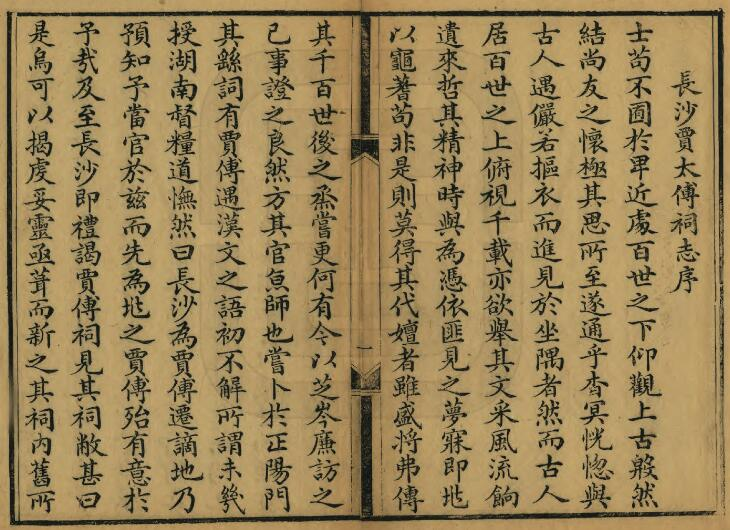 長沙賈太傅祠志序
士苟不囿於卑近處百世之下仰觀上古毅然
結尚友之懷極其思所至遂通乎杳冥恍惚與
古人遇儼若摳衣而進見於坐隅者然而古人
居百世之上俯視千載亦欲舉其文采風流餉
遺來哲其精神時與為憑依匪見之夢寐即地
以龜蓍苟非是則莫得其代嬗者雖盛將弗傳
其千百世後之烝嘗更何有今以芝岑廉訪之
已事證之良然方其官魚師也嘗卜於正陽門
其繇詞有賈傅遇漢文之語初不解所謂未幾
授湖南督糧道憮然曰長沙為賈傅遷謫地乃
預知予當官於茲而先為地之賈傅殆有意於
予哉及至長沙即禮謁賈傅祠見其祠敝甚曰
是烏可以揭虔妥靈亟葺而新之其祠內舊所
一